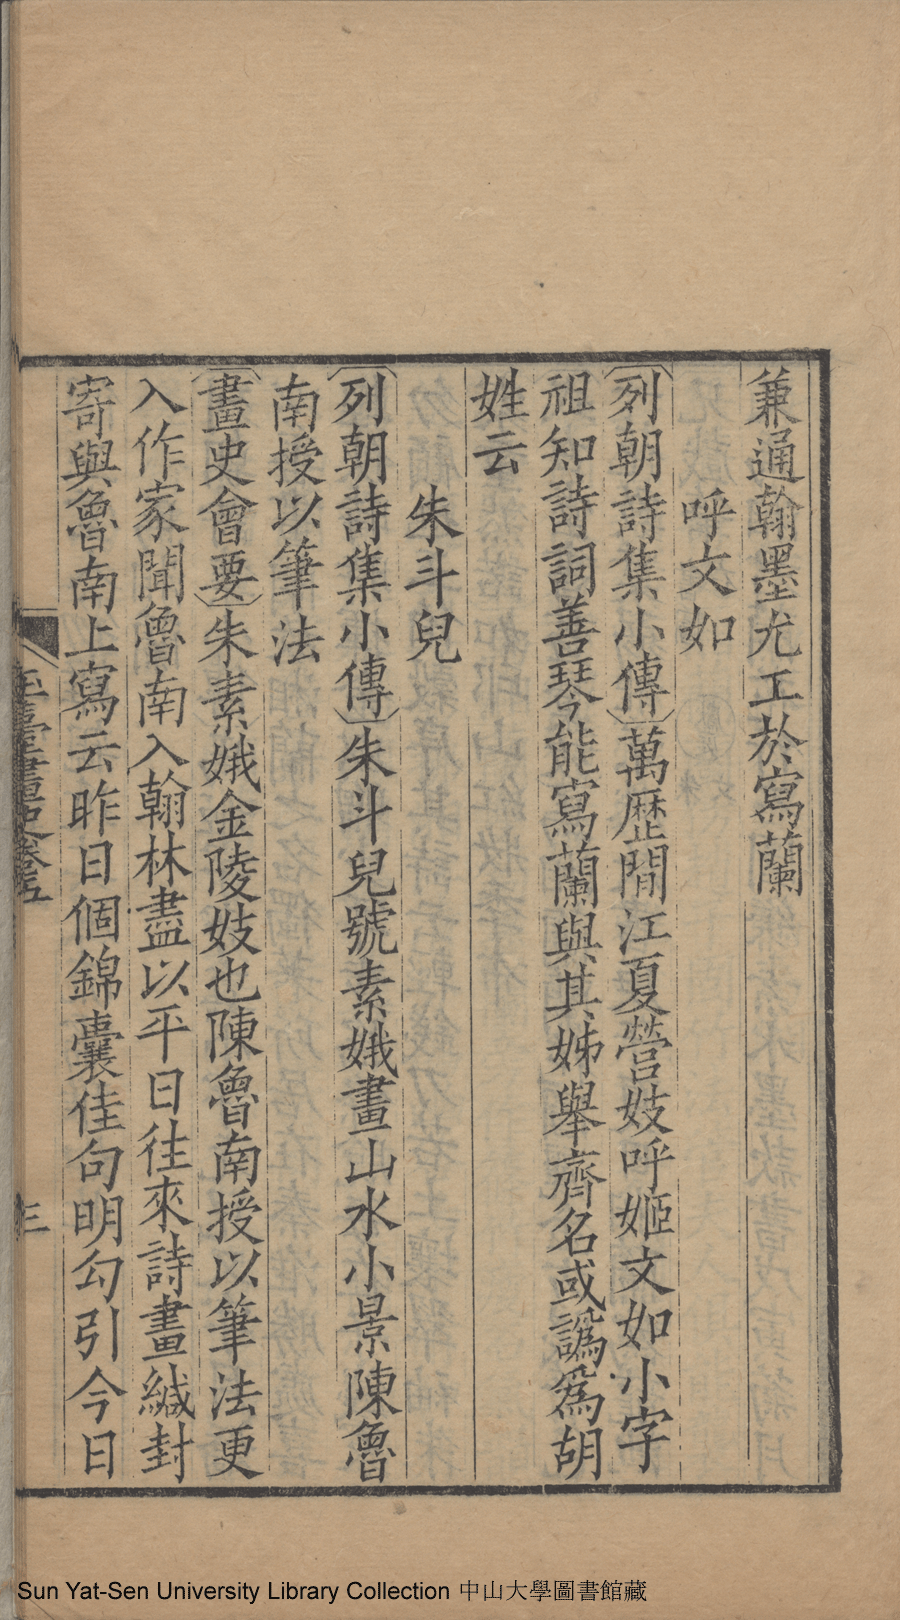 兼通翰墨尤工於寫蘭
呼文如
〔列朝詩集小傳〕萬歷間江夏營妓呼姬文如小字
祖知詩詞善琴能寫蘭與其姊舉齊名或譌爲胡
姓云
朱斗兒
〔列朝詩集小傳〕朱斗兒號素娥畫山水小景陳魯
南授以筆法
〔畫史會要〕朱素娥金陵妓也陳魯南授以筆法更
入作家聞魯南入翰林盡以平日往來詩畫緘封
寄與魯南上寫云昨日個錦囊佳句明勾引今日
玉臺畫史卷五
三
Sun Yat-Sen University Library Collection 中山大學圖書館藏